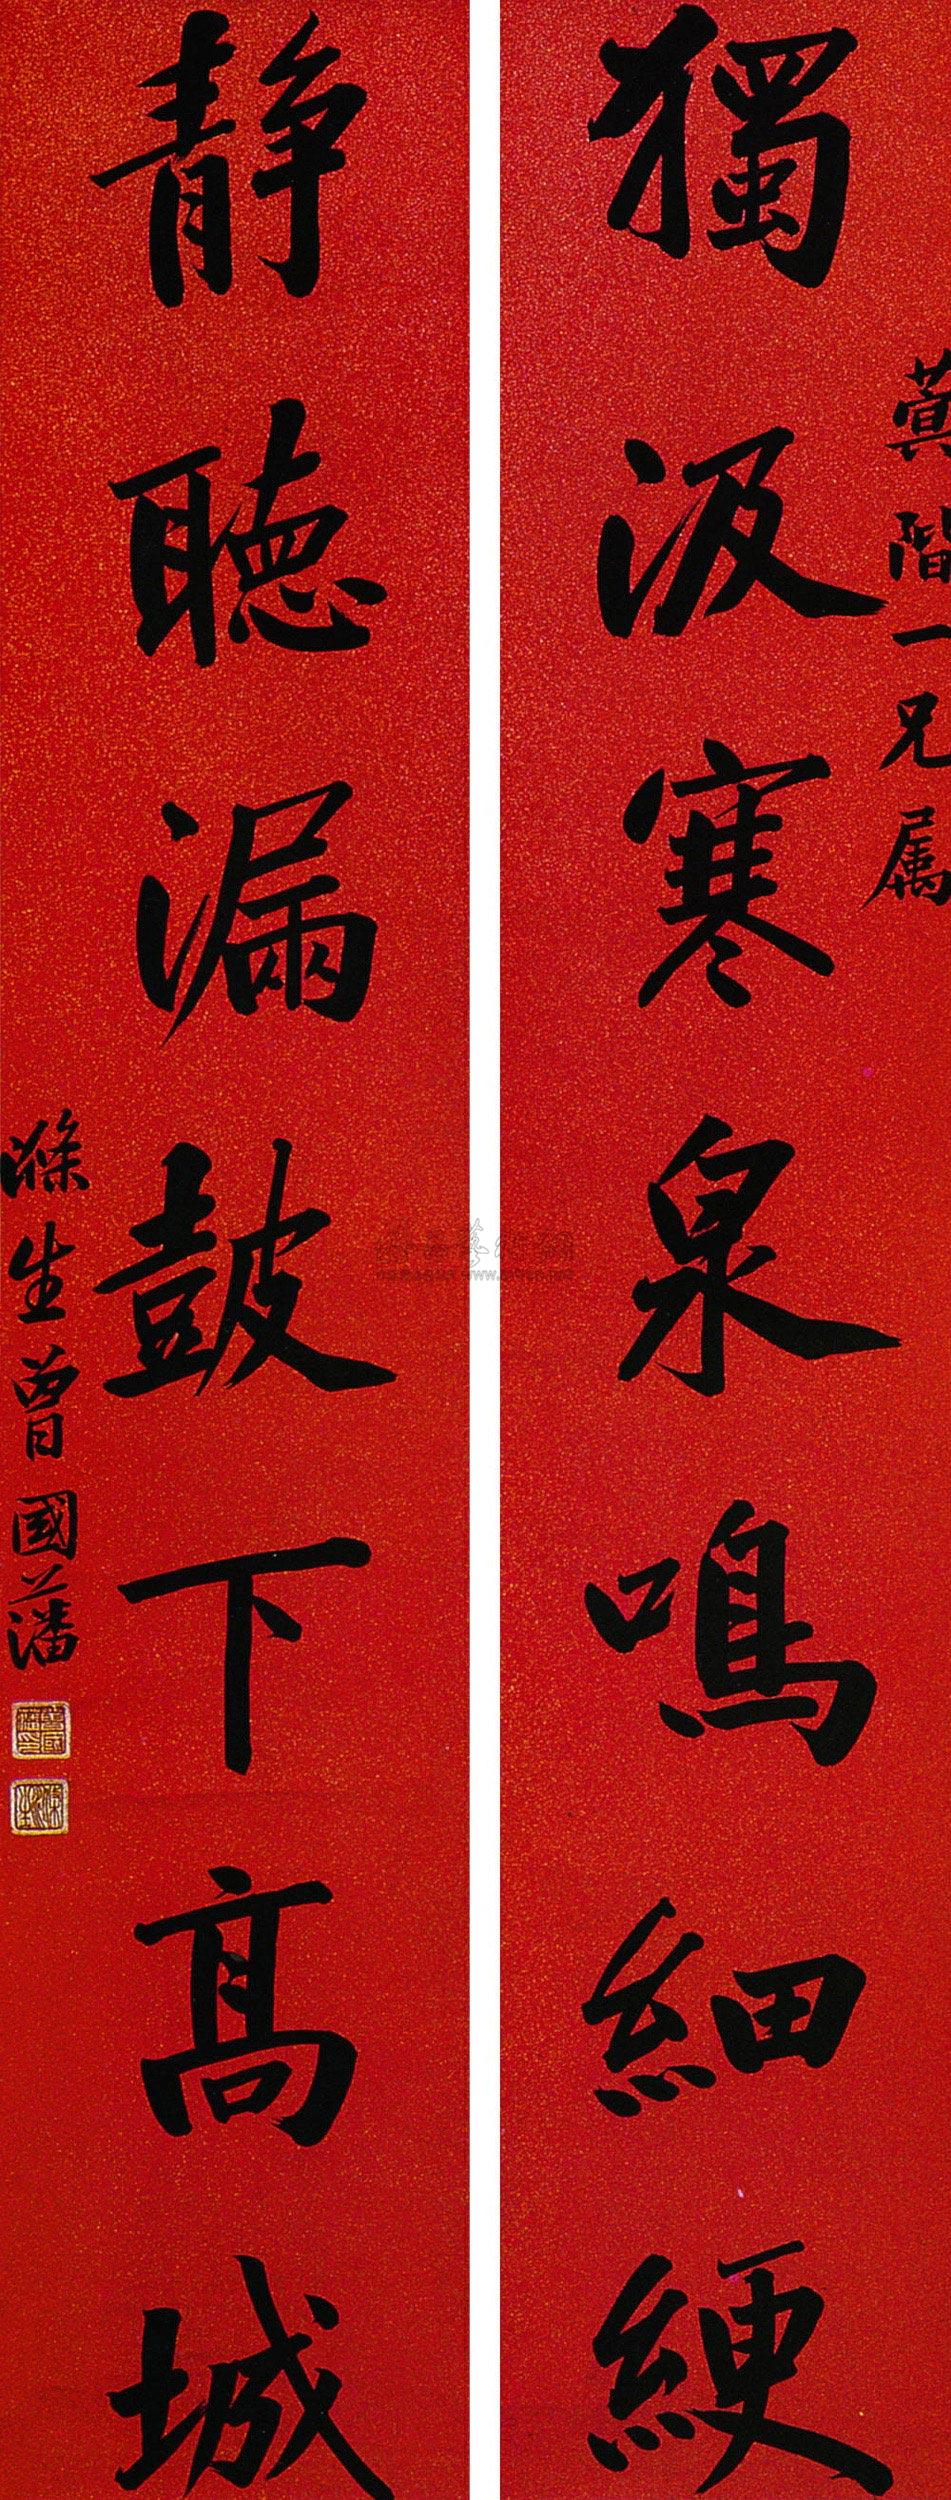 蓂階一兄属
獨汲寒泉鳴細綆
静聽漏鼓下高城
滌生曾國藩